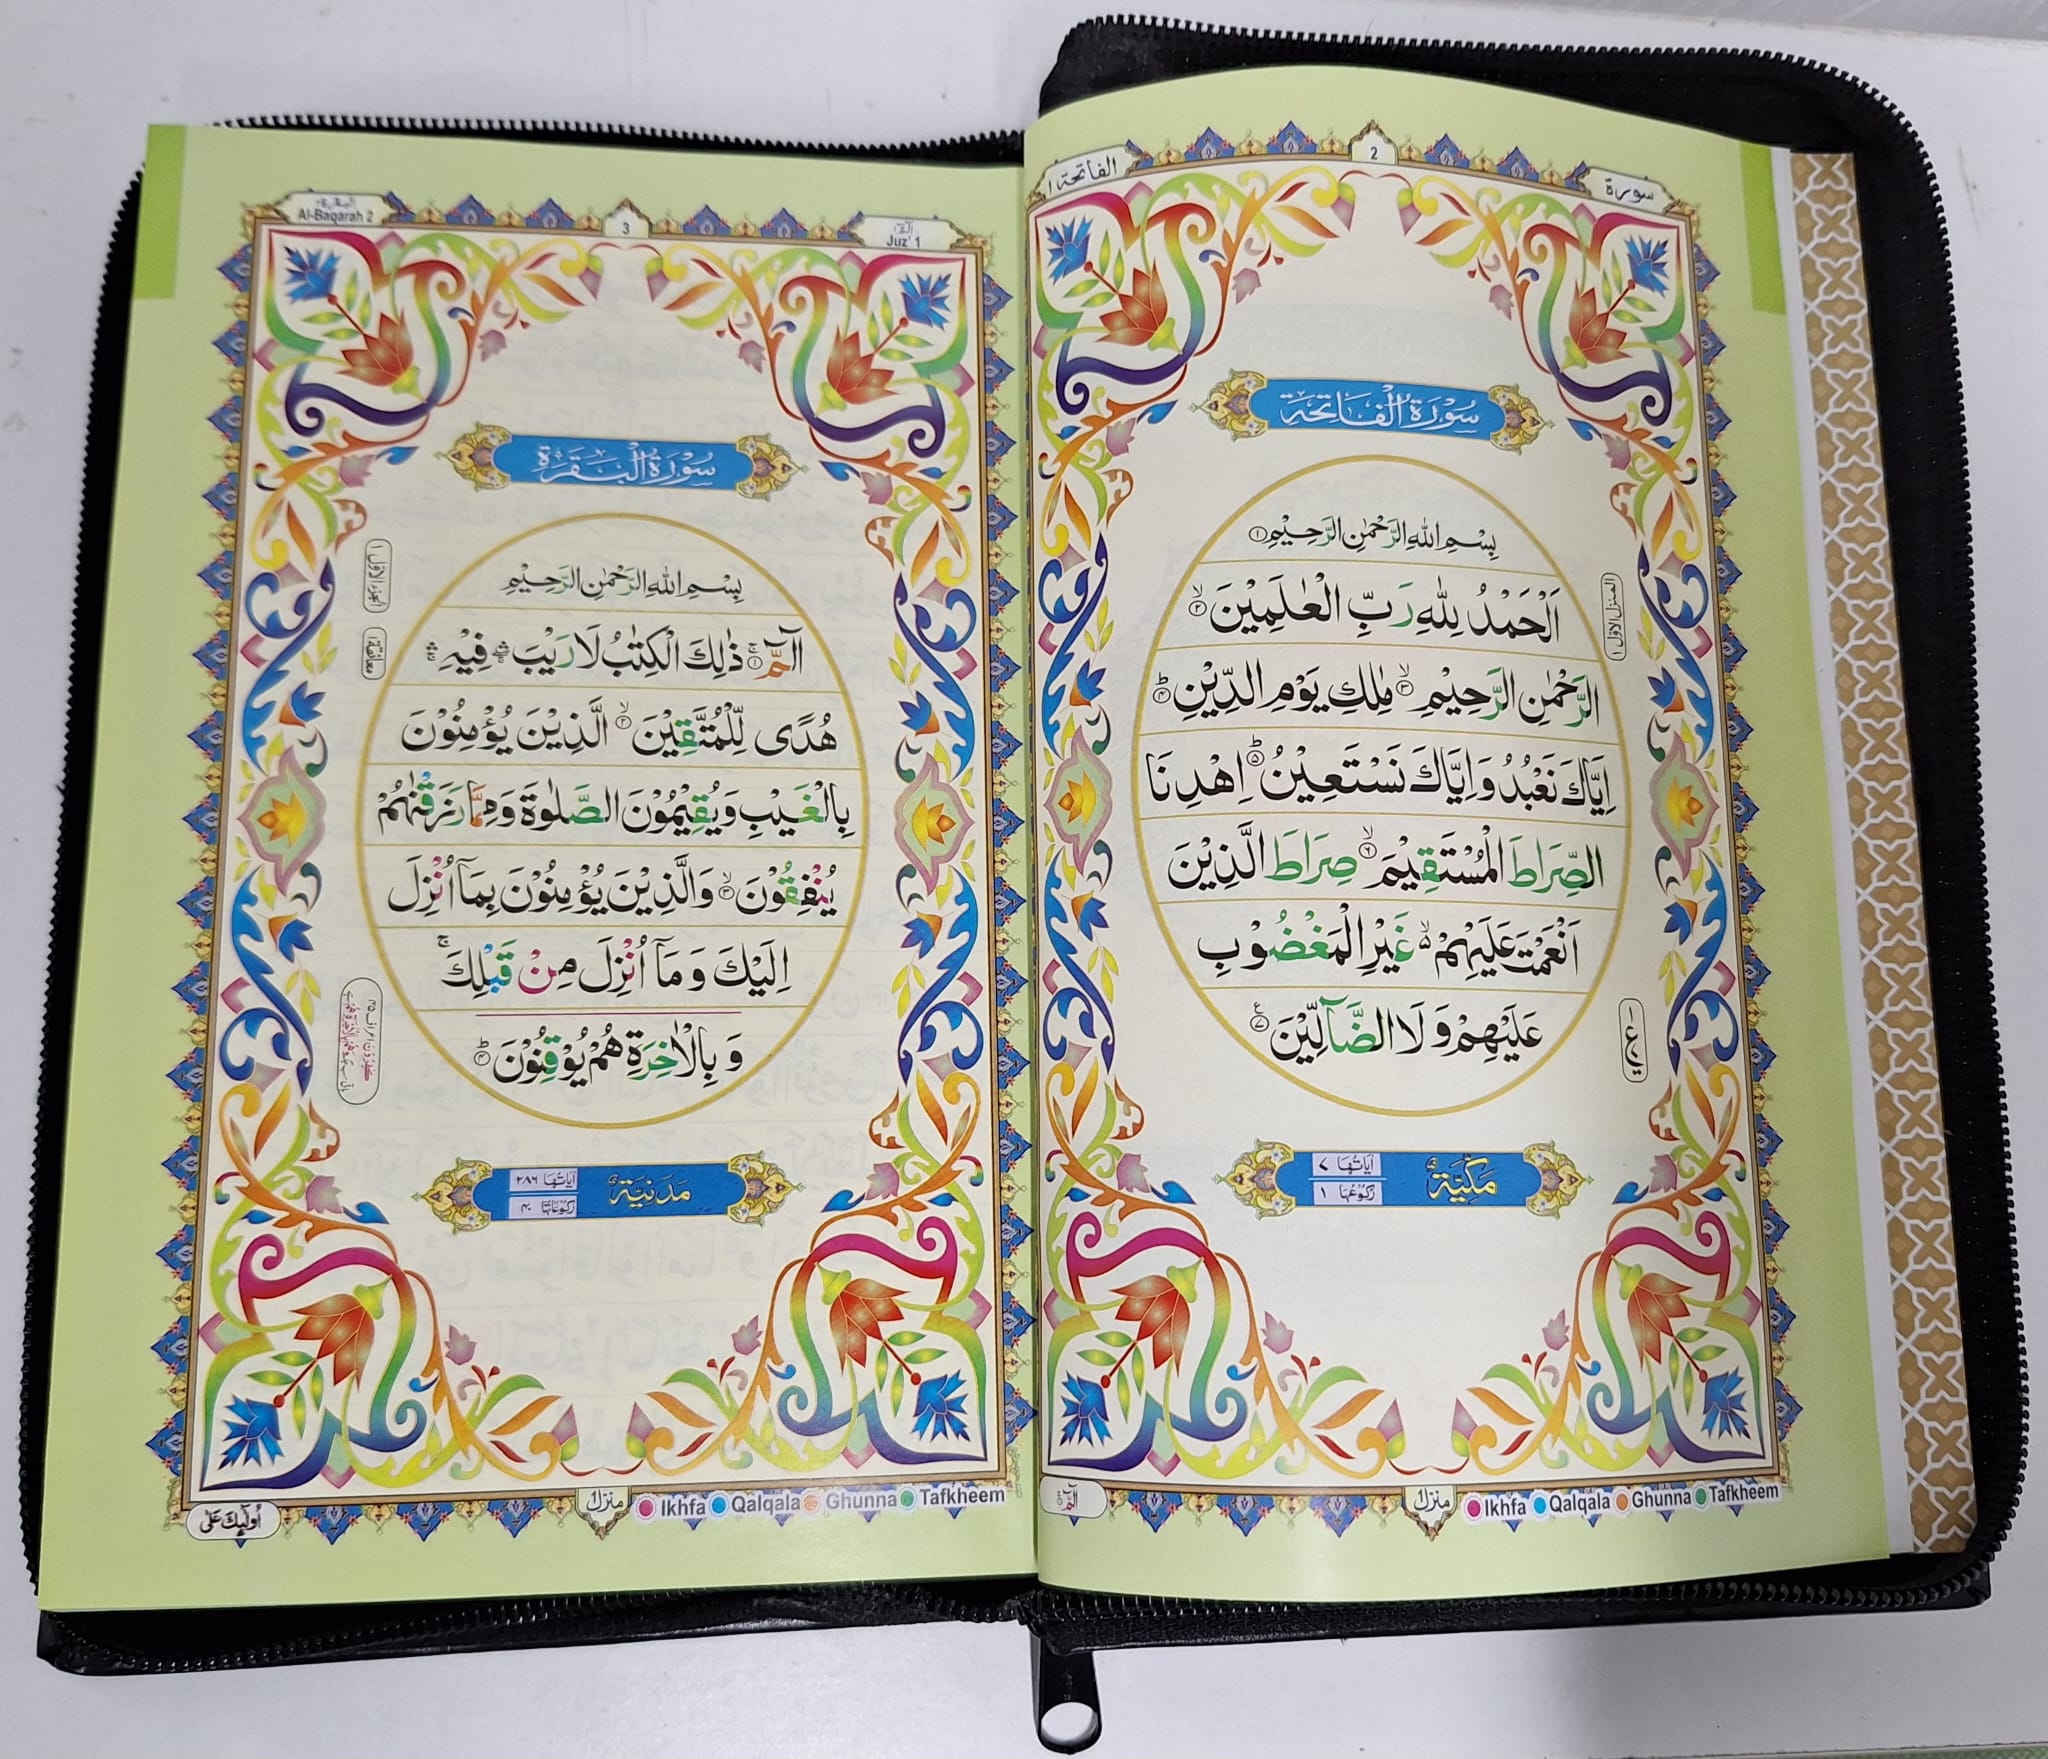 سورة
2
الفاتحة ١
سُوْرَةُ الْفَاتِحَة
بِسْمِ اللّٰهِ الرَّحْمٰنِ الرَّحِيْمِ ۝١
اَلْحَمْدُ لِلّٰهِ رَبِّ الْعٰلَمِيْنَ ۙ۝٢
الرَّحْمٰنِ الرَّحِيْمِ ۙ۝٣ مٰلِكِ يَوْمِ الدِّيْنِ ؕ۝٤
اِيَّاكَ نَعْبُدُ وَ اِيَّاكَ نَسْتَعِيْنُ ؕ۝٥ اِهْدِنَا
الصِّرَاطَ الْمُسْتَقِيْمَ ۙ۝٦ صِرَاطَ الَّذِيْنَ
اَنْعَمْتَ عَلَيْهِمْ ۙ۬ غَيْرِ الْمَغْضُوْبِ
عَلَيْهِمْ وَ لَا الضَّآلِّيْنَ ۝٧
ع
المنزل الاوّل ١
مَكِّيَّةٌ
اٰيَاتُهَا ٧
رُكُوْعُهَا ١
الٓمّٓ
منزل ١
Ikhfa Qalqala Ghunna Tafkheem
الٓمّٓ
Juz' 1
3
البقرة ٢
Al-Baqarah 2
سُوْرَةُ الْبَقَرَة
بِسْمِ اللّٰهِ الرَّحْمٰنِ الرَّحِيْمِ
الٓمّٓ ۚ۝١ ذٰلِكَ الْكِتٰبُ لَا رَيْبَ ۛۖ فِيْهِ ۛۚ
هُدًى لِّلْمُتَّقِيْنَ ۙ۝٢ الَّذِيْنَ يُؤْمِنُوْنَ
بِالْغَيْبِ وَ يُقِيْمُوْنَ الصَّلٰوةَ وَ مِمَّا رَزَقْنٰهُمْ
يُنْفِقُوْنَ ۙ۝٣ وَالَّذِيْنَ يُؤْمِنُوْنَ بِمَاۤ اُنْزِلَ
اِلَيْكَ وَ مَاۤ اُنْزِلَ مِنْ قَبْلِكَ ۚ
وَ بِالْاٰخِرَةِ هُمْ يُوْقِنُوْنَ ؕ۝٤
الجزء الاوّل ١
معانقة ١
مَدَنِيَّةٌ
اٰيَاتُهَا ٢٨٦
رُكُوْعَاتُهَا ٤٠
اُولٰٓىِٕكَ عَلٰى
منزل ١
Ikhfa Qalqala Ghunna Tafkheem